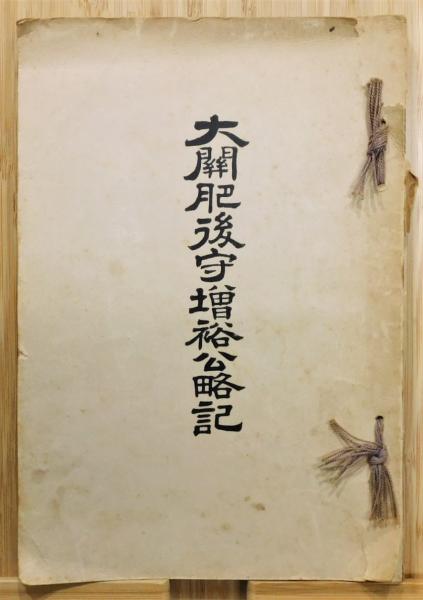 大關肥後守增裕公略記